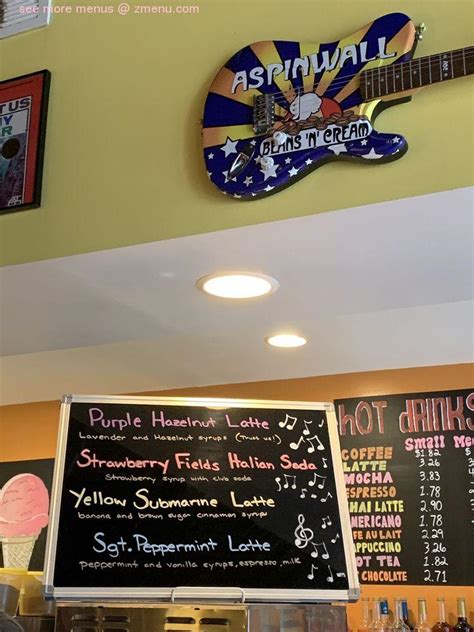 see more menus @ zmenu.com
ASPINWALL
BEANS 'N' CREAM
Purple Hazelnut Latte
Lavender and Hazelnut syrups (Trust us!)
Strawberry Fields Italian Soda
Strawberry syrup with club soda
Yellow Submarine Latte
banana and brown sugar cinnamon syrup
Sgt. Peppermint Latte
peppermint and vanilla syrups, espresso, milk
HOT dRiNKS
Small Me
COFFEE $1.82
LATTE 3.26
MOCHA 3.03
ESPRESSO 1.78
HAI LATTE 2.90
MERICANO 1.78
FE AU LAIT 2.29
PPUCCINO 3.23
OT TEA 1.82
CHOCOLATE 2.71